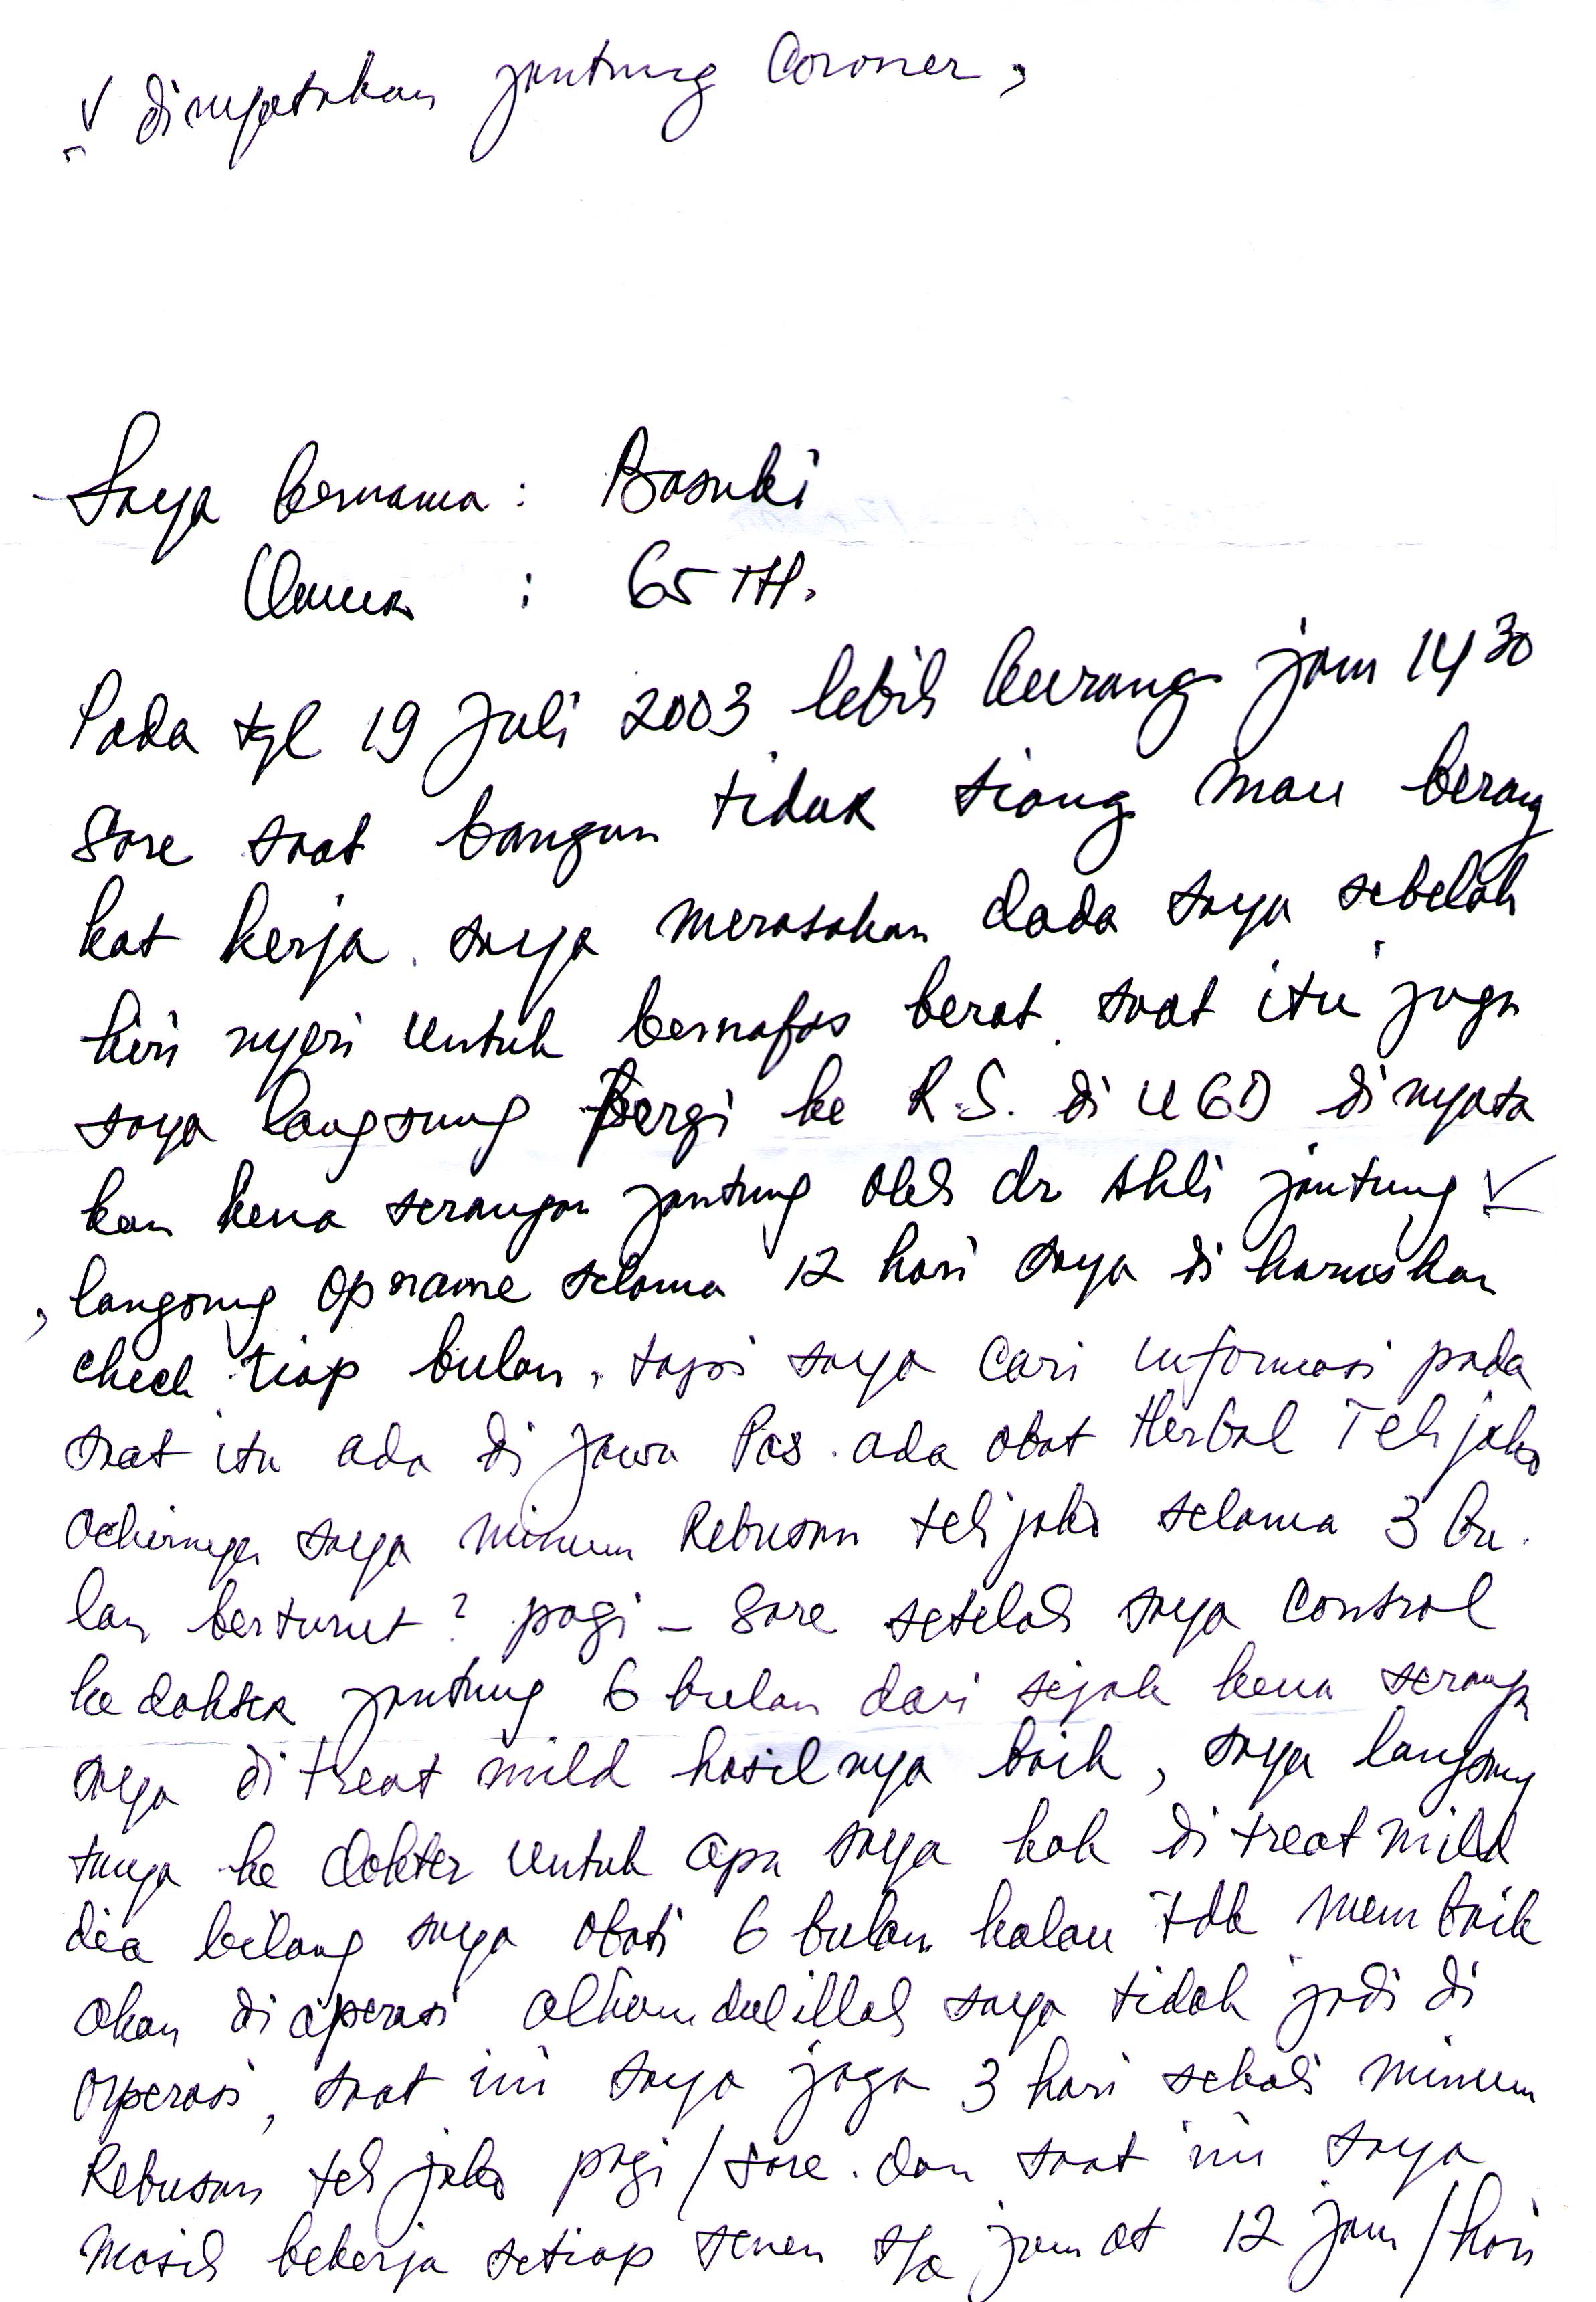 √ dinyatakan jantung Coroner,
Saya bernama : Basuki
Umur : 65 TH.
Pada tgl 19 Juli 2003 lebih kurang jam 14 30
Sore saat bangun tidur siang mau berang
kat kerja. saya merasakan dada saya sebelah
kiri nyeri untuk bernafas berat. saat itu juga
saya langsung pergi ke R.S. di UGD dinyata
kan kena serangan jantung oleh dr Ahli jantung √
, langsung opname selama 12 hari saya di haruskan
check tiap bulan, tapi saya cari informasi pada
saat itu ada di Jawa Pos. ada obat Herbal Teh jako
Achirnya saya minum Rebusan teh jako selama 3 bu
lan berturut² pagi - Sore setelah saya Control
ke dokter jantung 6 bulan dari sejak kena serang
saya di treat mild hasilnya baik, saya langsung
tanya ke dokter untuk apa saya kok di treat mild
dia bilang saya obati 6 bulan kalau tdk membaik
akan di operasi alhamdulillah saya tidak jadi di
operasi, saat ini saya jaga 3 hari sekali minum
Rebusan teh jako pagi/sore. dan saat ini saya
Masih bekerja setiap senen s/a jum at 12 jam/hari